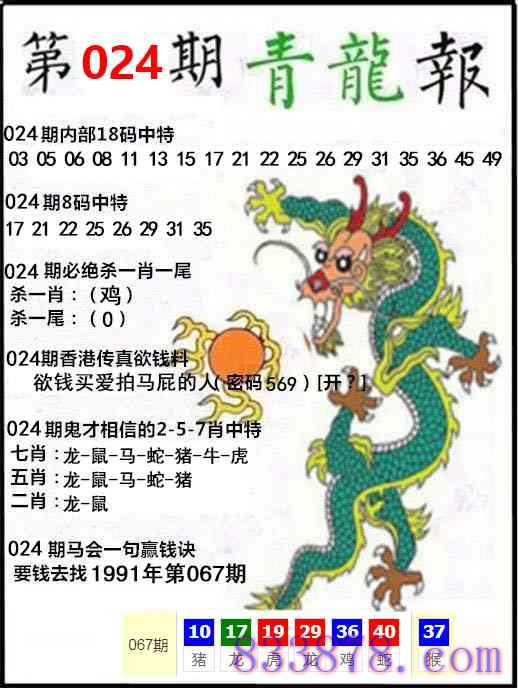 第024期青龍報
024期内部18码中特
03 05 06 08 11 13 15 17 21 22 25 26 29 31 35 36 45 49
024期8码中特
17 21 22 25 26 29 31 35
024 期必绝杀一肖一尾
杀一肖：（鸡）
杀一尾：（0）
024期香港传真欲钱料
欲钱买爱拍马屁的人（密码569）[开？]
024期鬼才相信的2-5-7肖中特
七肖：龙-鼠-马-蛇-猪-牛-虎
五肖：龙-鼠-马-蛇-猪
二肖：龙-鼠
024 期马会一句赢钱诀
要钱去找1991年第067期
067期 10 17 19 29 36 40 37
猪 龙 虎 龙 鸡 蛇 猴
833878.com